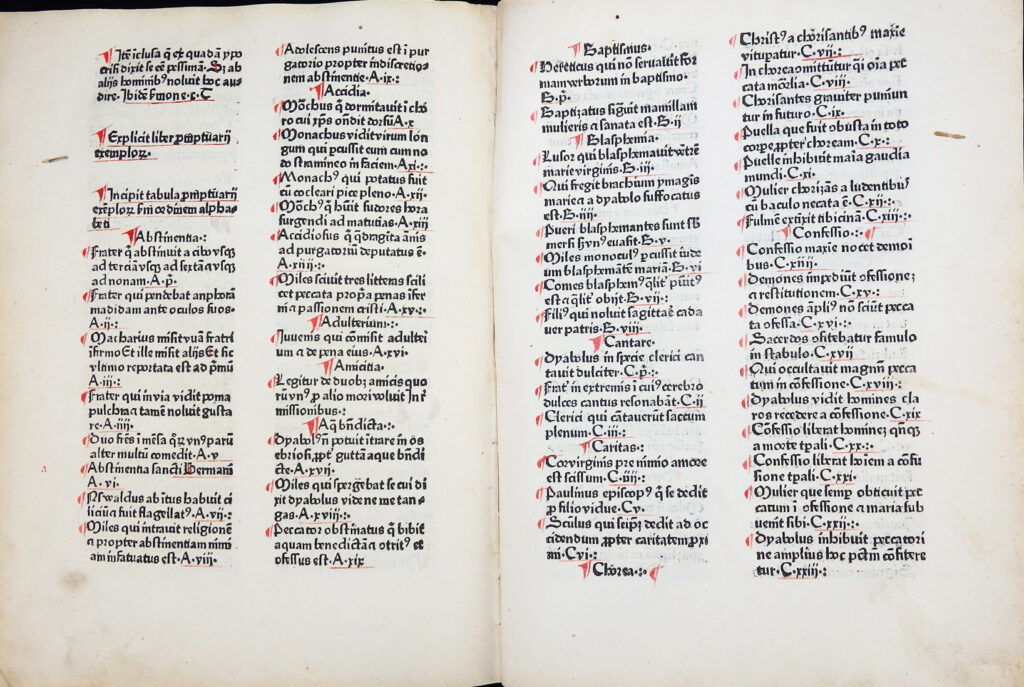 ¶ Itē īclusa q̄ et quadā ypo
crisi dixit se eē pessimā. Si ab
alijs hominib⁹ noluit hoc au-
dire. Ibidē ẜmone.c. T
¶ Explicit liber ꝓmptuarij
exemploꝝ.
¶ Incipit tabula ꝓmptuarij
exēploꝝ ẜm ordinem alpha-
beti
¶ Abstinentia.:
Frater q̄ abstinuit a cibo vsq̨
ad terciā vsq̨ ad sextā vsq̨
ad nonam. A.p̄.
Frater qui pendebat anphorā
madidam ante oculos suos.
A.ij.:
Macharius misit vuā fratri
īfirmo Et ille misit alijs Et sic
vltimo reportata est ad pͥmū
A.iij.:
Frater qui in via vidit poma
pulchra et tamē noluit gusta
re. A.iiij
Duo frēs ī mēsa qͦꝝ vn⁹ parū
alter multū comedit. A.v
Abstinentia sancti Germani
A.vi.
Oswaldus abītus habuit ci
liciū et fuit flagellat⁹. A.vij.:
Miles qui intrauit religionē
et propter abstinentiam nimi
am infatuatus est. A.viij.
Adolescens punitus est ī pur
gatorio propter indiscretio-
nem abstinentie. A.ix.:
¶ Accidia.
Mōchus q̄ dormitauit ī cho
ro cui xp̄s oñdit dorsū A.x
Monachus vidit virum lon
gum qui percussit eum cum no
do stramineo in faciem. A.xi.:
Monach⁹ qui potatus fuit
cū cocleari pice pleno. A.xij.
Mōch⁹ q̄ hūit sudores hora
surgendi ad matutīas. A.xiij
Accidiosus q̄ qͣdragīta ānis
ad purgatoriū deputatus ē.
A.xiiij.:
Miles sciuit tres litteras scili
cet peccata propͥa penas īfer
ni et passionem cristi. A.xv.:
¶ Adulterium.:
Iuuenis qui comisit adulteri
um et de pena eius. A.xvi.
¶ Amicitia.
Legitur de duob⁹ amicis quo
rū vn⁹ p̱ alio mori voluit In r̄
missionibus.:
¶ Aq̄ bn̄dicta.:
Dyabol⁹ nō potuit ītrare in os
ebriosi, ꝓpt̄ guttā aque bn̄di
cte. A.xvij.
Miles qui spergebat se cui di
xit dyabolus vide ne me tan-
gas. A.xviij.:
Peccator obstinatus q̄ bibit
aquam benedictā et ɔtrit⁹ et
ɔfessus est. A.xix
¶ Baptismus.
Hereticus qui nō seruauit for
mam verborum in baptismo.
B.p̄.
Baptizatus sugunt mamillam
mulieris et sanata est. B.ij
¶ Blasphemia.
Lusor qui blasphemauit vētrē
marie virginis. B.iij.
Qui fregit brachium ymagīs
marie et a dyabolo suffocatus
est. B.iiij.
Pueri blasphemantes sunt sb̄
mersi et vn⁹ euasit. B.v.
Miles monocul⁹ ꝑcussit iude
um blasphemātē mariā. B.vi
Comes blasphem⁹ qͣlit̄ punit⁹
est et qͣlit̄ obijt. B.vij.:
Fili⁹ qui noluit sagittare cada
uer patris. B.viij.
¶ Cantare.
Dyabolus in specie clerici can
tauit dulciter. C.p̄.:
Frat̄ in extremis ī cui⁹ cerebro
dulces cantus resonabāt. C.ij
Clerici qui cātauerūt saccum
plenum. C.iij.:
¶ Caritas.:
Cor virginis pre nimio amore
est scissum. C.iiij.:
Paulinus episcop⁹ q̄ se dedit
ꝑ filio vidue. Cv.
Sc̄ulus qui seip̄m dedit ad oc
cidendum ꝓpter caritatem ꝓxi
mi. Cvi.:
¶ Chorea.:
Christ⁹ a chorisantib⁹ maxīe
vituperatur. C.vij.:
In chorea omittūtur qͣsi oīa pec
cata mortalia. C.viij.
Chorisantes grauiter puniun
tur in futuro. C.ix.
Puella que fuit obusta in toto
corꝑe ꝓpter choream. C.x.:
Puelle inhibuit maia gaudia
mundi. C.xi.
Mulier chorizās a ludentib⁹
cū baculo necata ē. C.xij.:
Fulmē extīxit tibicinā. C.xiij.:
¶ Confessio.:
Confessio maxīe nocet demoī
bus. C.xiiij.
Demones īmpediūt ɔfessionez
et restitutionem. C.xv.:
Demones āpli⁹ nō sciūt pecca
ta ɔfessa. C.xvi.:
Sacerdos ɔfitebatur famulo
in stabulo. C.xvij
Qui occultauit magnū pecca
tum in cōfessione. C.xviij.:
Dyabolus vidit homines cla
ros recedere a cōfessione. C.xix
Cōfessio liberat hominez qn̄q̨
a morte tp̄ali. C.xx.:
Confessio liberat hoīem a cōfu
sione tp̄ali. C.xxi.
Mulier que semp̱ obticuit pec
catum ī ɔfessione et a maria sub
uenit sibi. C.xxij.:
Dyabolus inhibuit peccatori
ne amplius hoc pctm̄ cōfitere
tur. C.xxiij.: